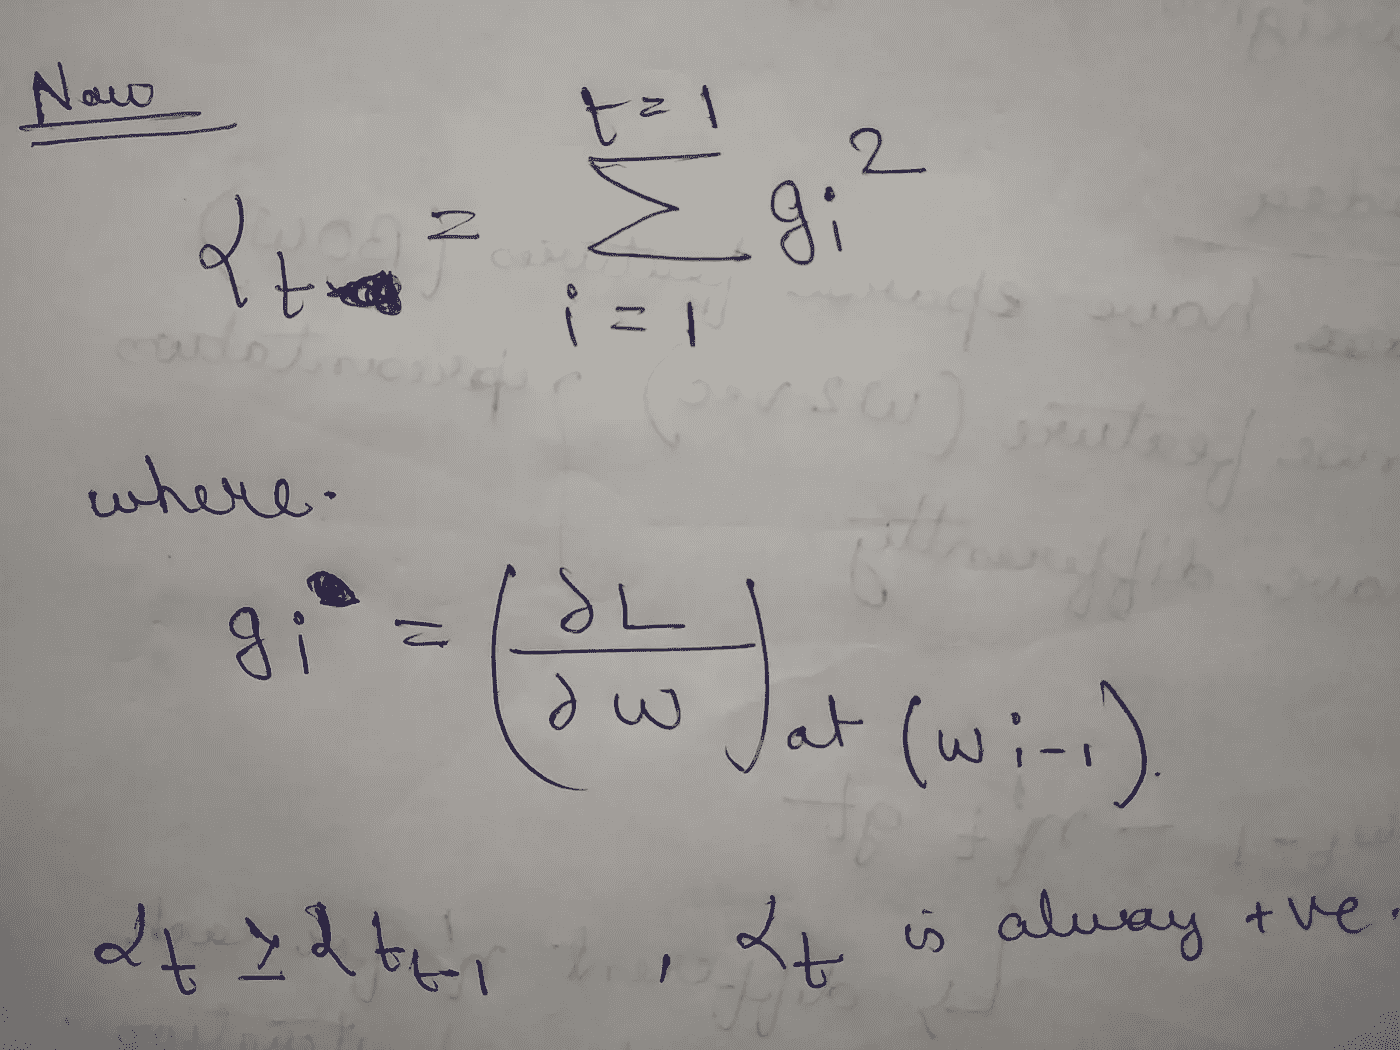 Now
αt = Σ_{i=1}^{t=1} gi²
where.
gi = (∂L/∂w) at (wi-1).
αt ≥ αtt-1 , αt is alway +ve.